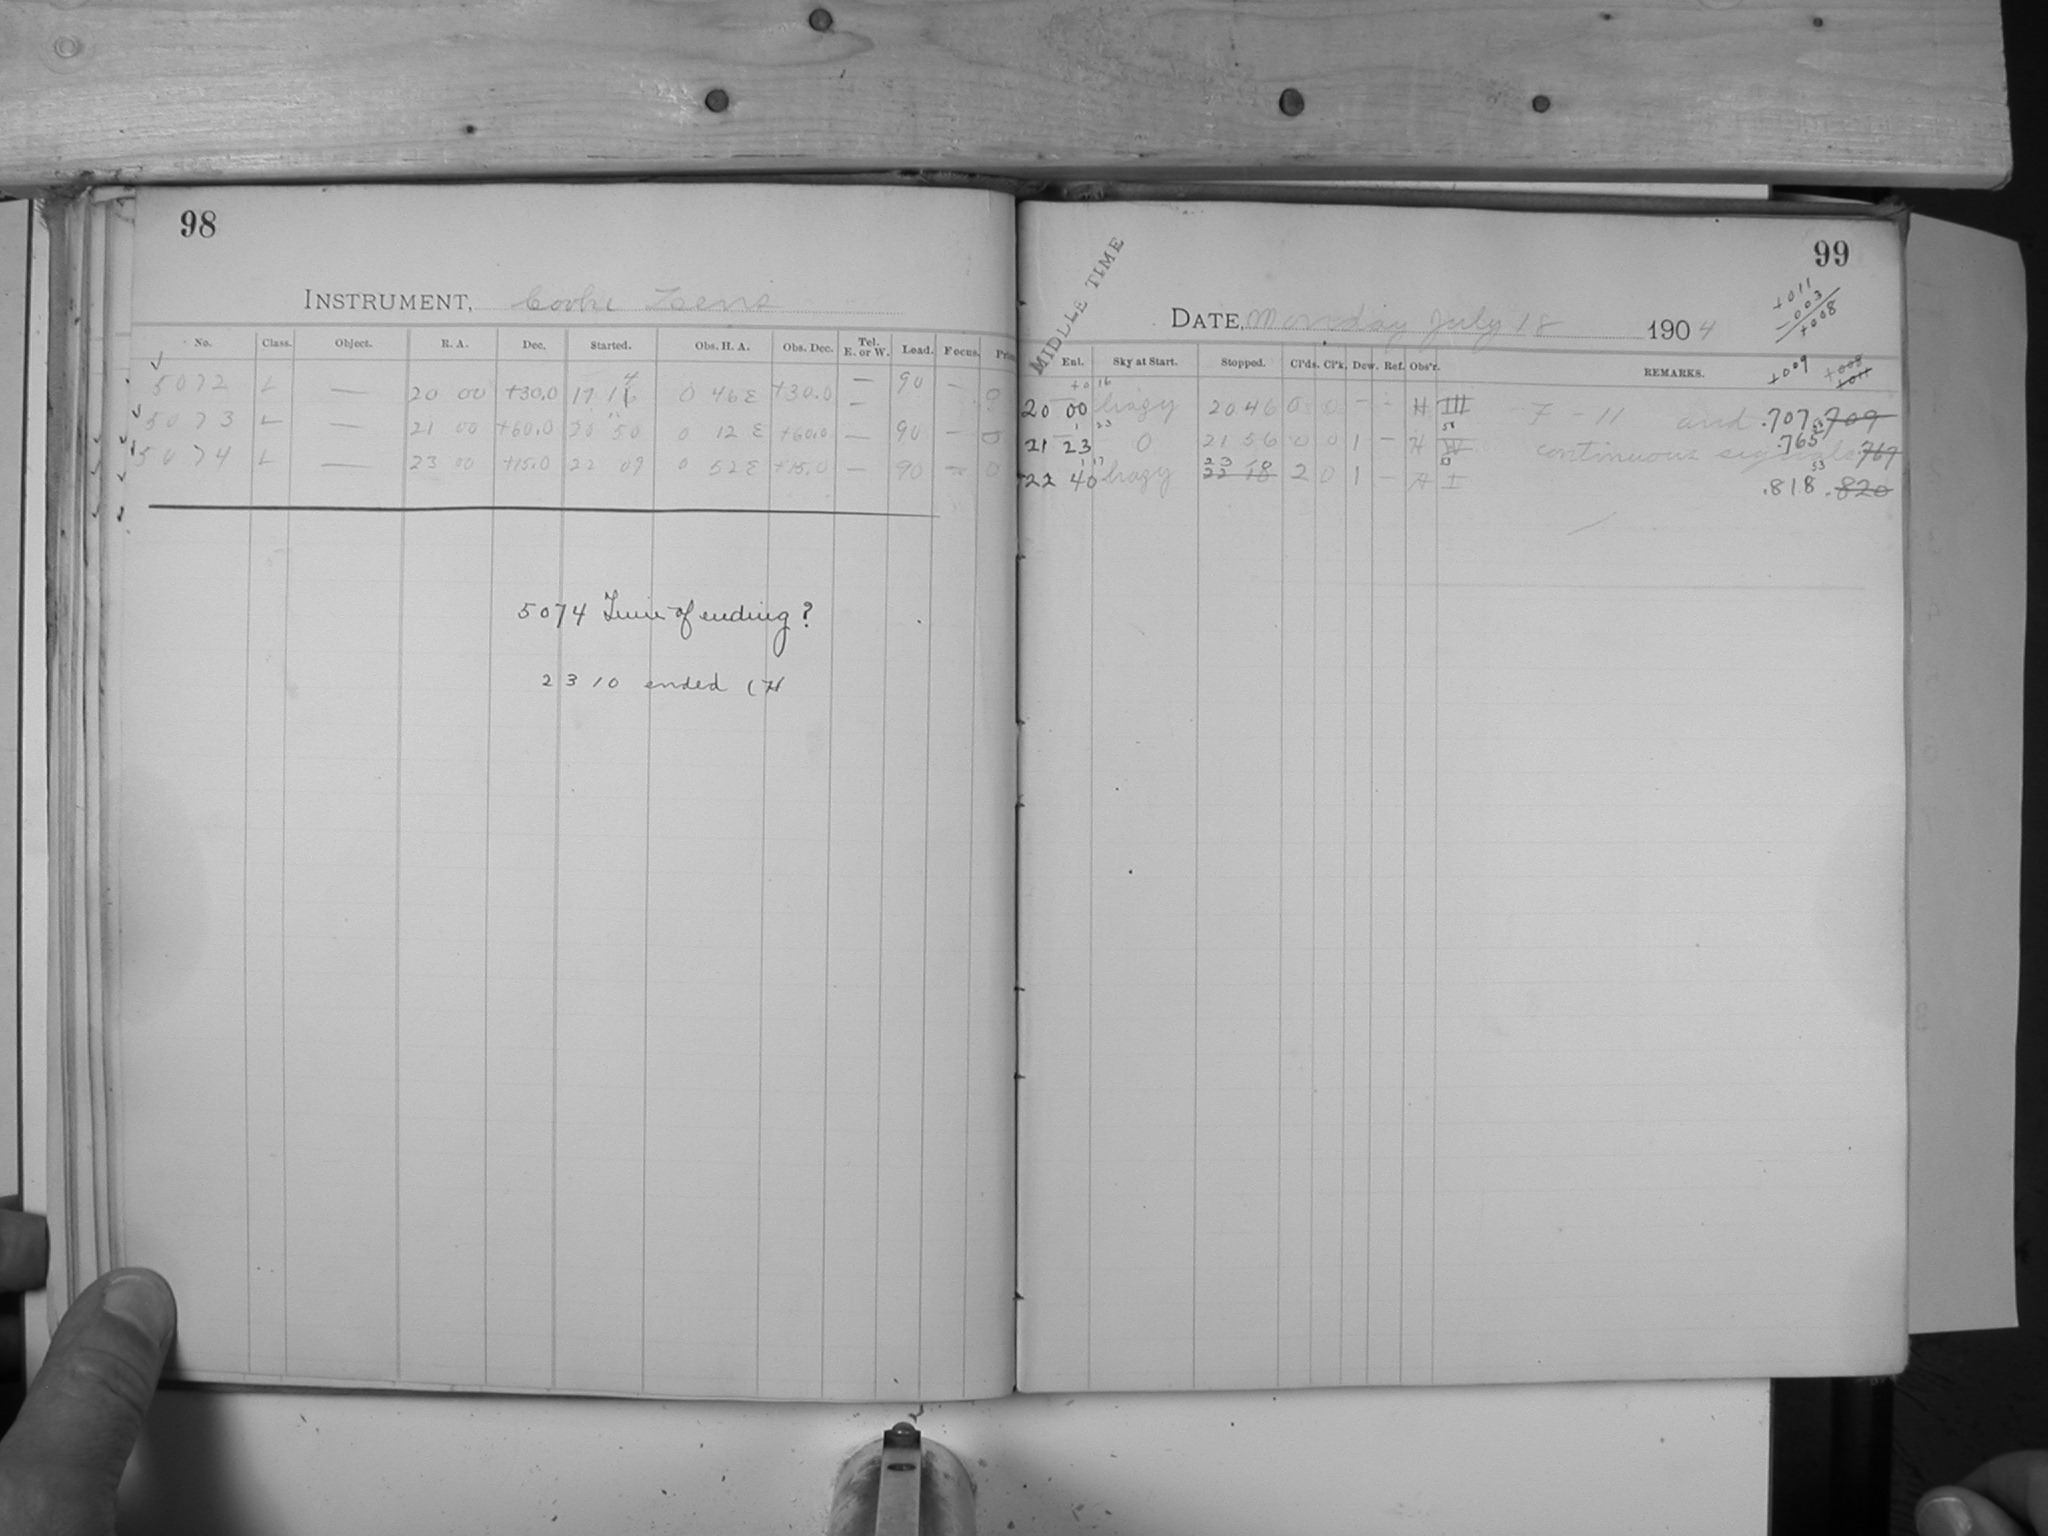 98
INSTRUMENT, Cooke Lens
No. Class. Object. R. A. Dec. Started. Obs. H. A. Obs. Dec. Tel. E. or W. Load. Focus.
5072 L — 20 00 +30.0 19 14 0 46 E +30.0 — 90 —
5073 L — 21 00 +60.0 20 50 0 12 E +60.0 — 90 — 0
5074 L — 23 00 +15.0 22 09 0 52 E +15.0 — 90 — 0
5074 Time of ending?
23 10 ended (H
99
MIDDLE TIME
DATE, Monday July 18 1904
+011
-003
+008
Enl. Sky at Start. Stopped. Cl'ds. Cl'k. Dew. Ref. Obs'r. REMARKS. +009 +008 +011
20 00 hazy 20 46 0 0 - - H III 7 - 11 and .707 .709
21 23 0 21 56 0 0 1 - H IV continuous signals .765 .767
22 40 hazy 23 10 22 18 2 0 1 - H I .818 .820